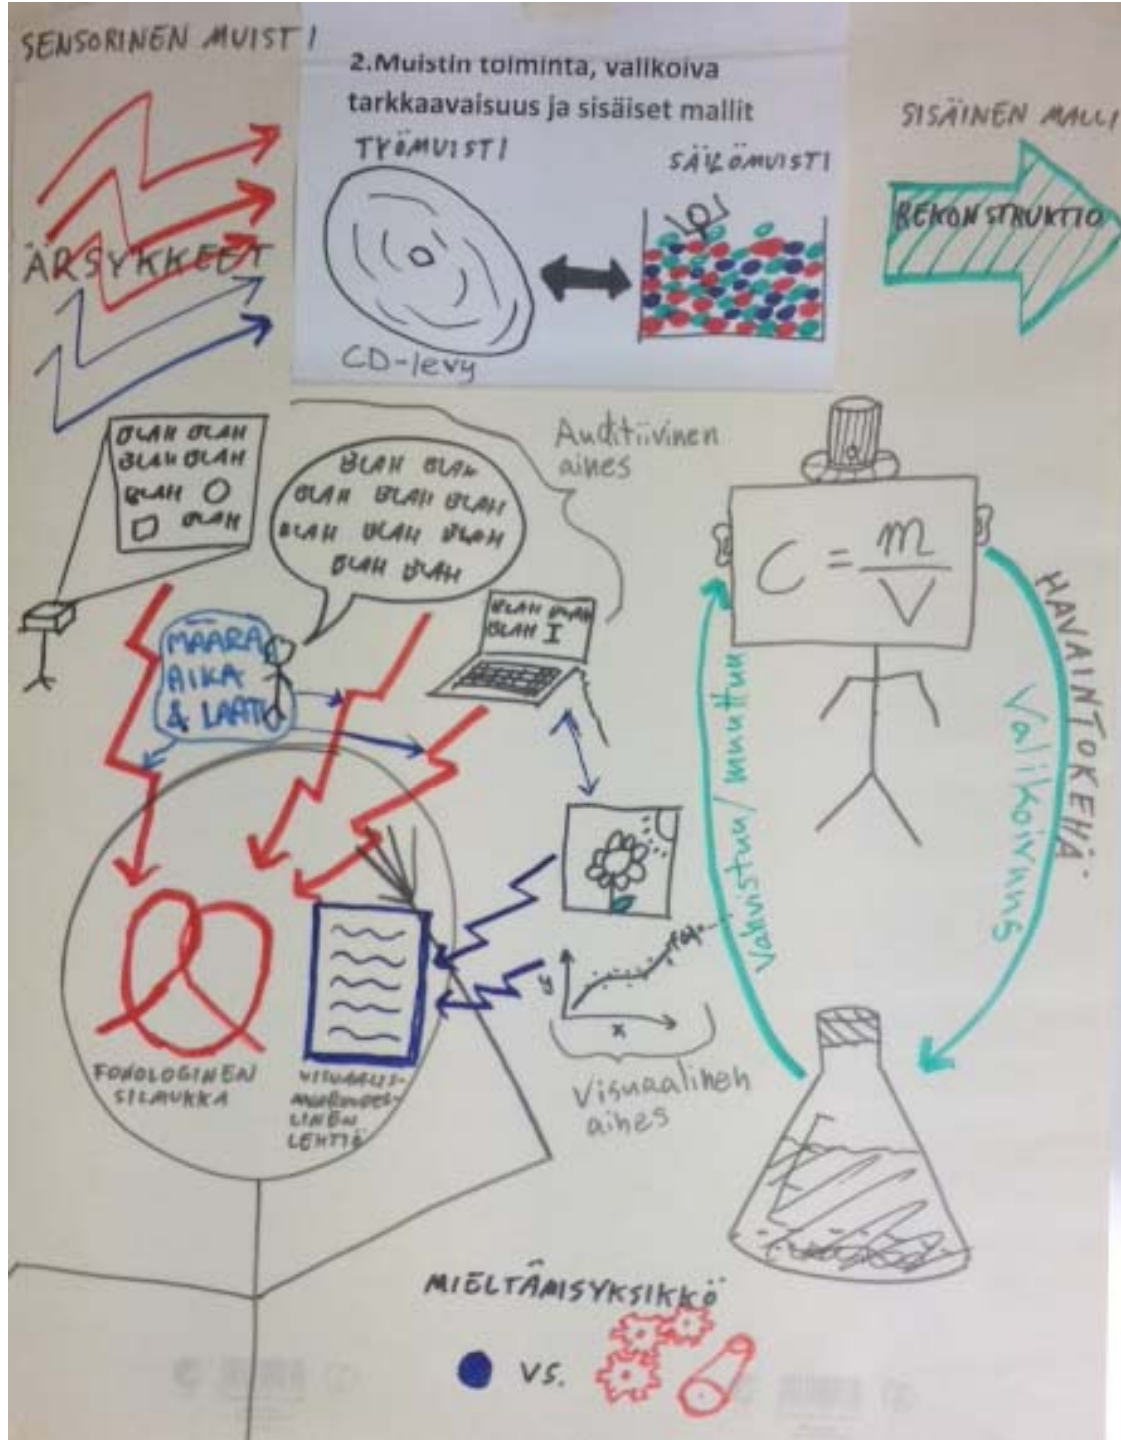 SENSORINEN MUISTI
2.Muistin toiminta, valikoiva
tarkkaavaisuus ja sisäiset mallit
TYÖMUISTI
SÄILÖMUISTI
SISÄINEN MALLI
REKONSTRUKTIO
ÄRSYKKEET
CD-levy
BLAH BLAH
BLAH BLAH
BLAH
BLAH
BLAH BLAH
BLAH BLAH BLAH
BLAH BLAH BLAH
BLAH BLAH
Auditiivinen
aines
BLAH BLAH
BLAH I
C = m
V
MÄÄRÄ
AIKA
& LAATU
HAVAINTOKEHÄ
Valikoivuus
Vahvistuu/muuttuu
y
x
FONOLOGINEN
SILMUKKA
LINEN
LEHTIÖ
Visuaalinen
aines
MIELTÄMISYKSIKKÖ
VS.